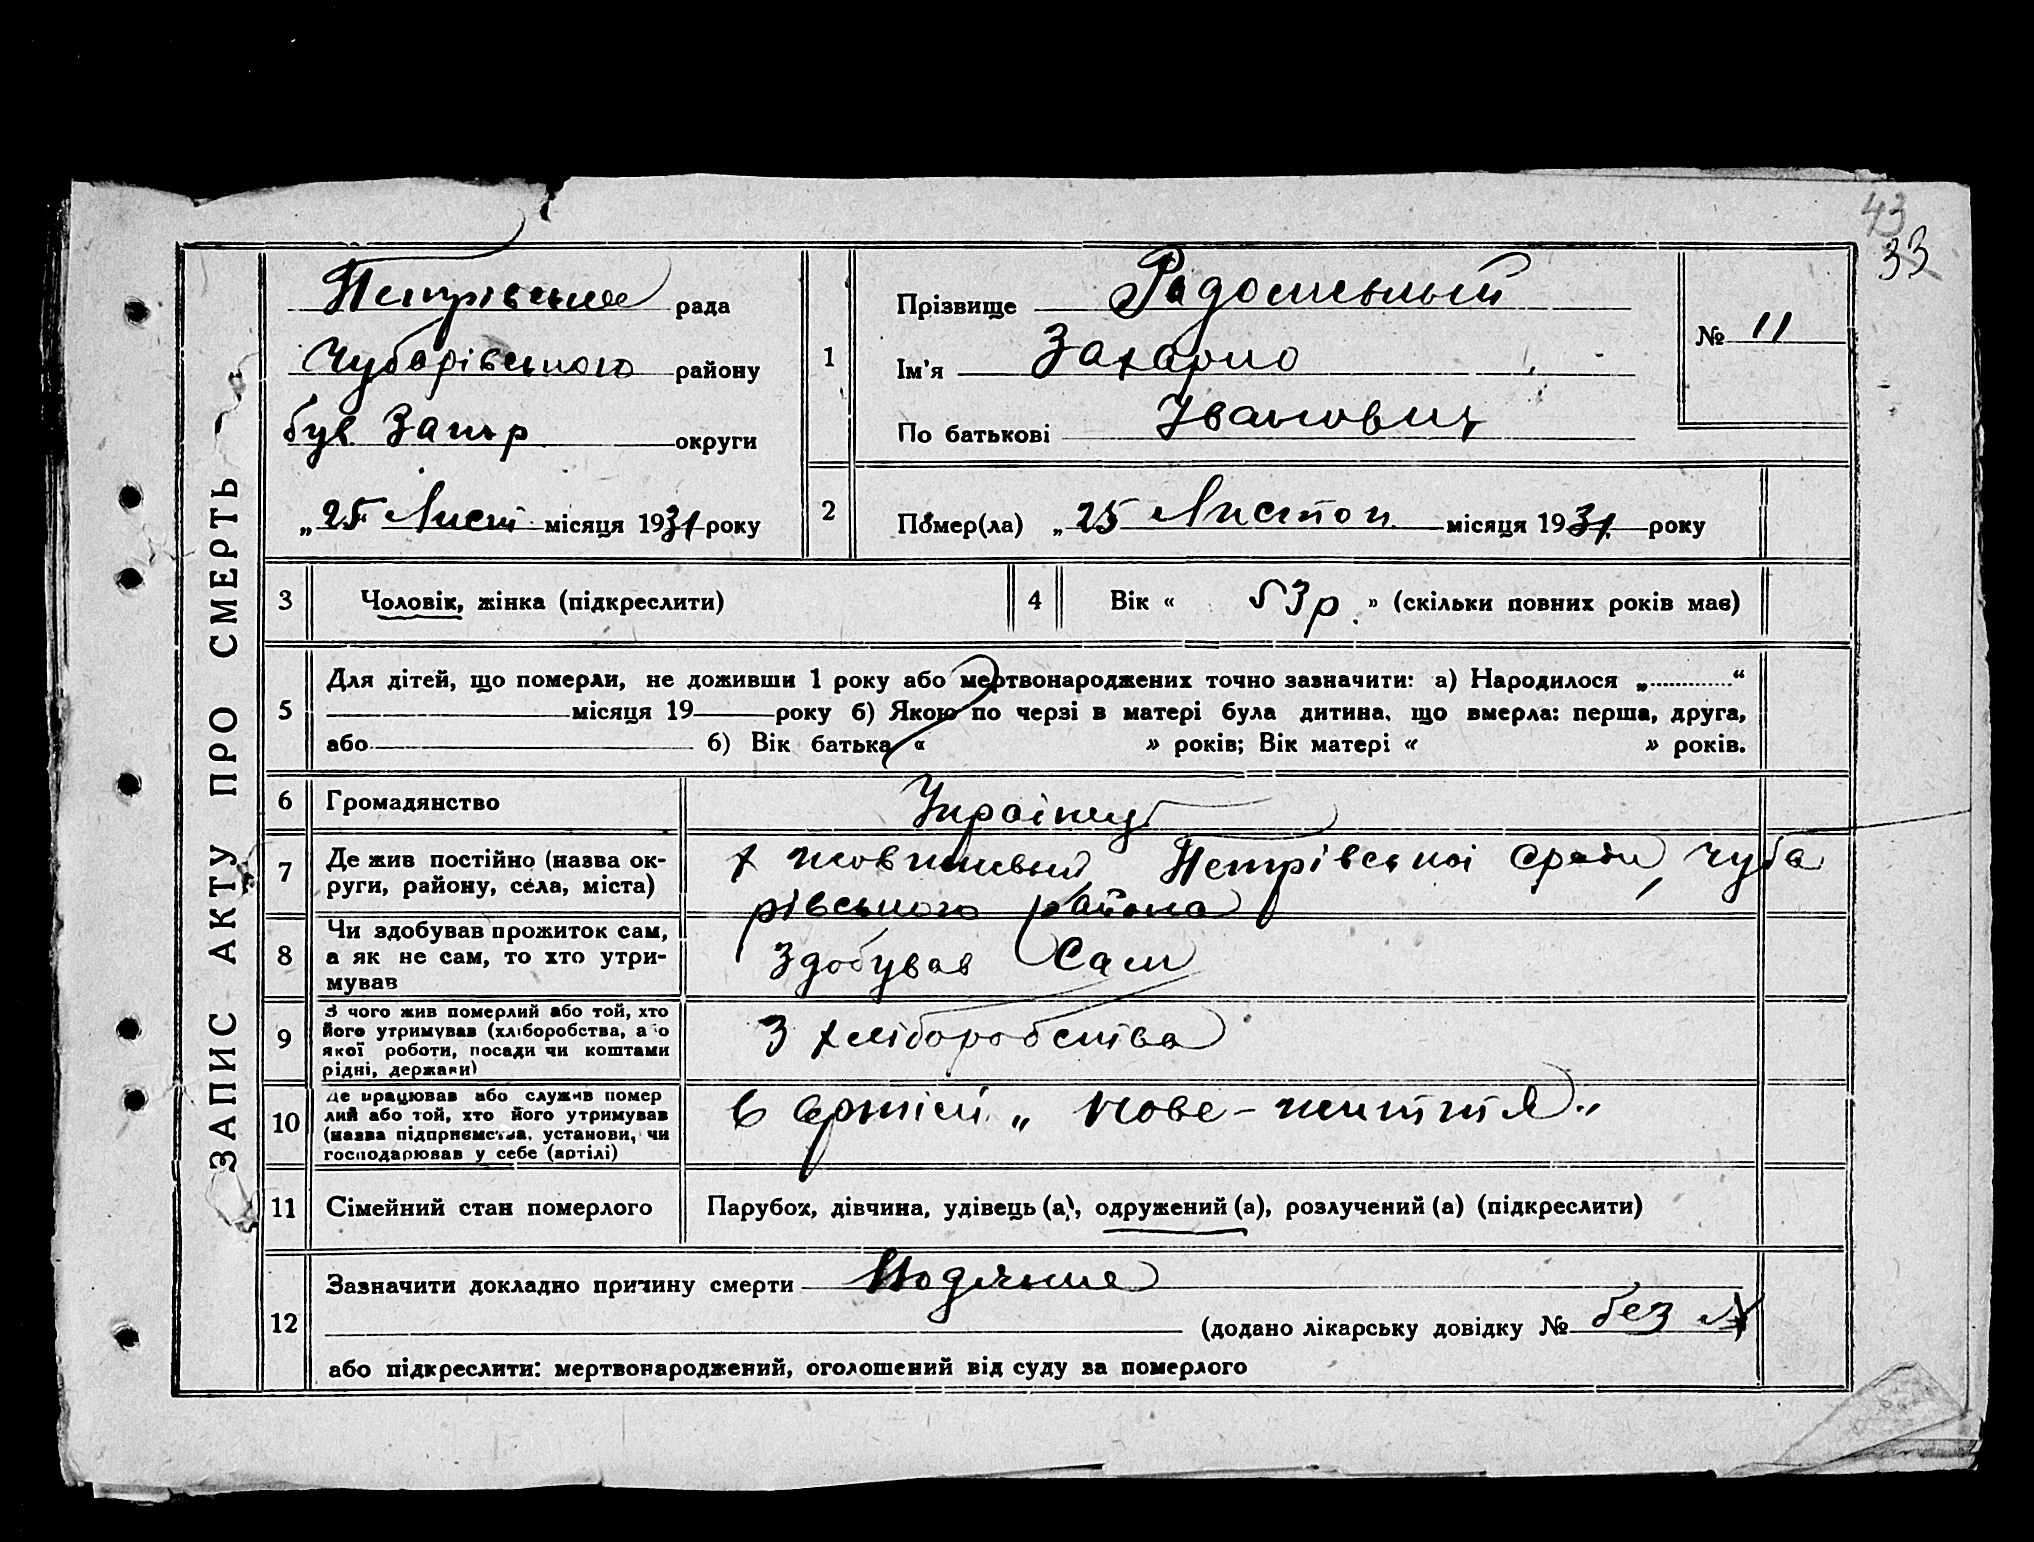 43
33
ЗАПИС АКТУ ПРО СМЕРТЬ
Петрівська рада
Чубарівського району
був Запор округи
„25" Лист місяця 1931 року
1
Прізвище Радомський
Ім'я Захарко
По батькові Іванович
№ 11
2
Помер(ла) „25 Листоп місяця 1931 року
3
Чоловік, жінка (підкреслити)
4
Вік « 53 р. » (скільки повних років має)
5
Для дітей, що померли, не доживши 1 року або мертвонароджених точно зазначити: а) Народилося „............“
місяця 19 року б) Якою по черзі в матері була дитина, що вмерла: перша, друга,
або б) Вік батька « » років; Вік матері « » років.
6
Громадянство
Українец
7
Де жив постійно (назва ок-
руги, району, села, міста)
х Петрівської Сради, Чуба
рівського района
8
Чи здобував прожиток сам,
а як не сам, то хто утри-
мував
Здобував Сам
9
З чого жив померлий або той, хто
його утримував (хліборобства, або
якої роботи, посади чи коштами
рідні, держави)
З хліборобства
10
Де працював або служив помер
лий або той, хто його утримував
(назва підприємства, установи, чи
господарював у себе (артілі)
в Артілі „Нове-життя“
11
Сімейний стан померлого
Парубок, дівчина, удівець (а), одружений (а), розлучений (а) (підкреслити)
12
Зазначити докладно причину смерти
(додано лікарську довідку № без №
або підкреслити: мертвонароджений, оголошений від суду за померлого